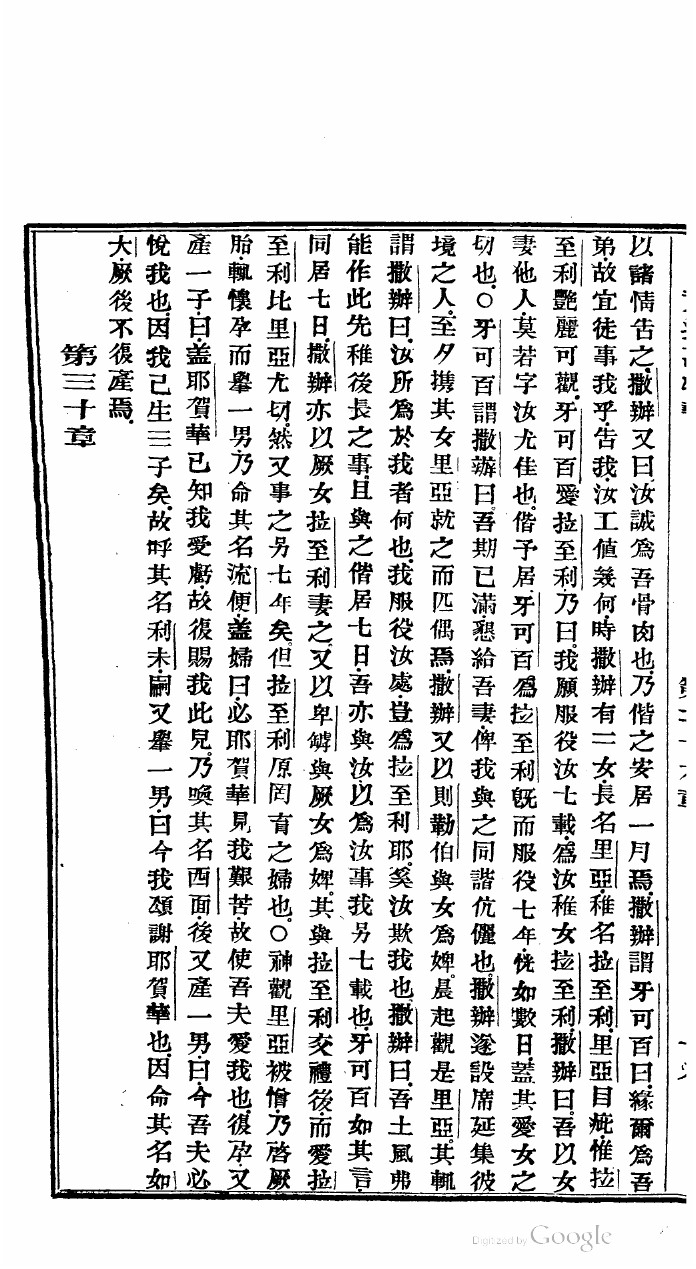 以諸情告之.撒辦又曰汝誠爲吾骨肉也.乃偕之安居一月焉.撒辦謂牙可百曰.緣爾爲吾
弟.故宜徒事我乎.告我.汝工值幾何.時撒辦有二女.長名里亞.稚名拉至利.里亞目疵.惟拉
至利艷麗可觀.牙可百愛拉至利.乃曰.我願服役汝七載.爲汝稚女拉至利.撒辦曰.吾以女
妻他人.莫若字汝尤佳也.偕予居.牙可百爲拉至利旣而服役七年.恍如數日.蓋其愛女之
切也.○牙可百謂撒辦曰.吾期已滿.懇給吾妻.俾我與之同諧伉儷也.撒辦遂設席延集彼
境之人.至夕攜其女里亞就之而匹偶焉.撒辦又以則勒伯與女爲婢.晨起觀是里亞.其輒
謂撒辦曰.汝所爲於我者何也.我服役汝處.豈爲拉至利耶.奚汝欺我也.撒辦曰.吾土風弗
能作此先稚後長之事.且與之偕居七日.吾亦與汝.以爲汝事我另七載也.牙可百如其言.
同居七日.撒辦亦以厥女拉至利妻之.又以卑罅與厥女爲婢.其與拉至利交禮後.而愛拉
至利比里亞尤切.然又事之另七年矣.但拉至利原罔育之婦也.○神觀里亞被憎.乃啓厥
胎.輒懷孕而舉一男.乃命其名流便.蓋婦曰.必耶賀華見我艱苦.故使吾夫愛我也.復孕.又
產一子.曰.蓋耶賀華已知我受虧.故復賜我此兒.乃喚其名西面.後又產一男.曰.今吾夫必
悅我也.因我已生三子矣.故呼其名利未.嗣又舉一男.曰.今我頌謝耶賀華也.因命其名如
大.厥後不復產焉.
第三十章
Digitized by Google